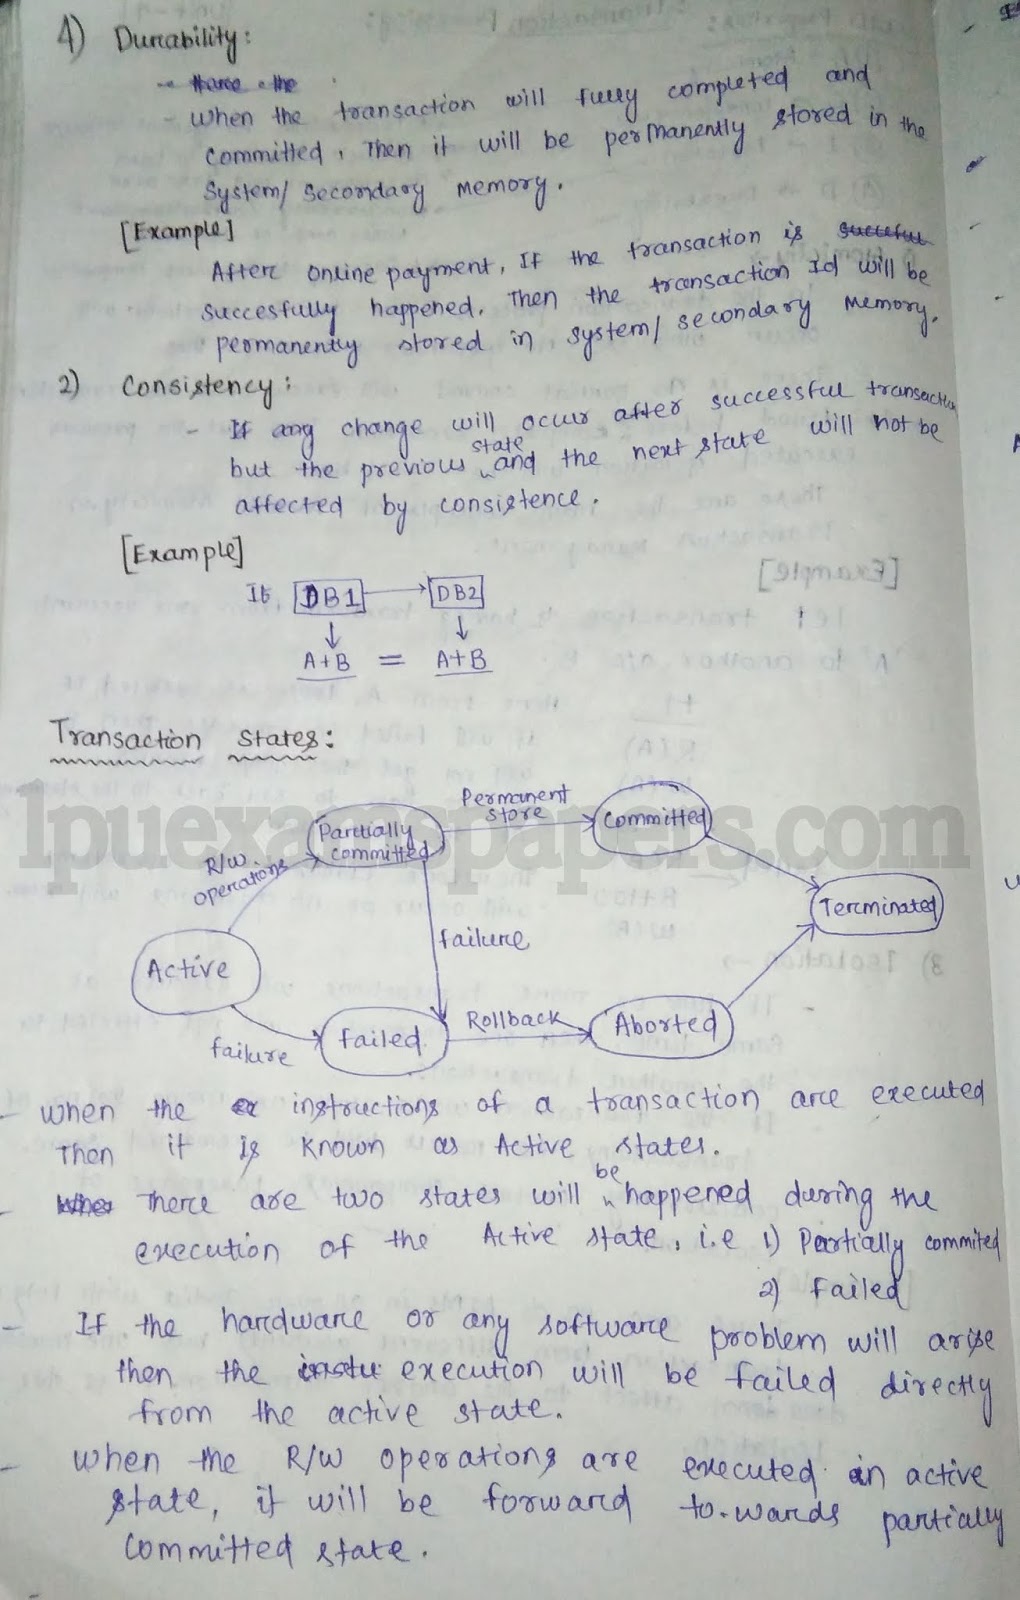 4) Durability:
- When the transaction will fully completed and
committed, Then it will be permanently stored in the
System/ Secondary Memory.
[Example]
After online payment, If the transaction is
succesfully happened, Then the transaction Id will be
permanently stored in system/ secondary Memory.
2) Consistency:
- If any change will occur after successful transaction
but the previous state and the next state will not be
affected by consistence.
[Example]
If DB1 → DB2
A+B = A+B
Transaction States:
Permanent
store
Partially
committed
Committed
R/W
operations
Terminated
failure
Active
Failed
Rollback
Aborted
failure
- When the instructions of a transaction are executed
Then it is Known as Active states.
- There are two states will be happened during the
execution of the Active state, i.e 1) Partially commited
2) Failed
- If the hardware or any software problem will arise
then the execution will be failed directly
from the active state.
- When the R/W operations are executed in active
state, it will be forward to-wards partially
committed state.
lpuexamspapers.com